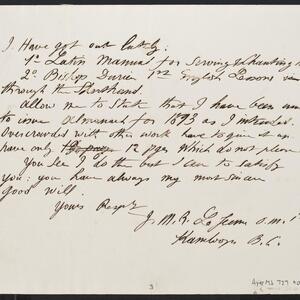 I Have got out lately:
1º Latin Manual for Serving & Chanting
2º Bishop Durieu 1st English Lessons
through the Shorthand.
Allow me to State that I have been
to issue almanach for 1893 as I intended.
Overcrowded with other work have to give it up
have only 12 pges which do not please
You see I do the best I can to satisfy
you: you have always my most sincere
good will.
Yours Respy
J. M. R. Le Jeune o.m.i.
Kamloops B.C.
3